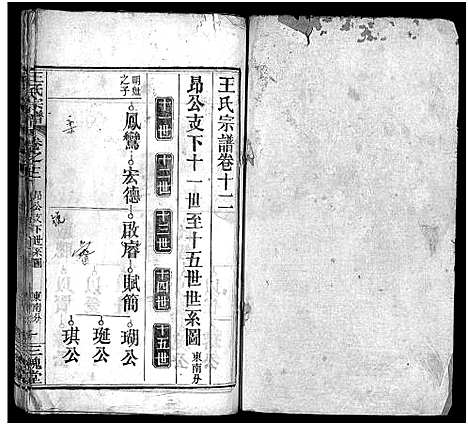 王氏宗譜卷十二
昂公支下十一世至十五世世系圖 東南分
十一世 十二世 十三世 十四世 十五世
明魁之子 鳳鸞 宏德 啟睿 賦簡 瑚公
珽公
琪公
王氏宗譜 卷之十二 昂公支下世系圖 東南分 三槐堂